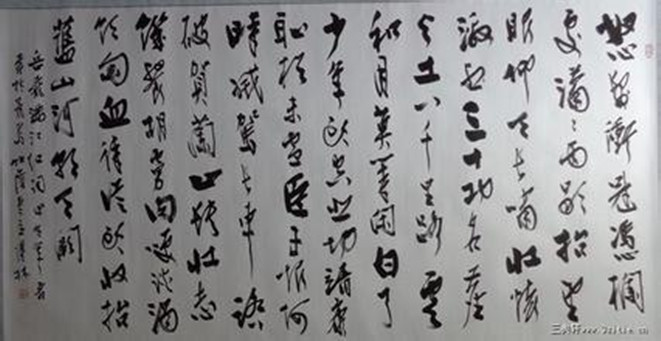 怒髮衝冠憑欄
處瀟瀟雨歇抬望
眼仰天長嘯壯懷
激烈三十功名塵
与土八千里路雲
和月莫等闲白了
少年頭空悲切靖康
恥猶未雪臣子恨何
時滅駕長車踏
破賀蘭山缺壯志
饑餐胡虜肉笑談渴
飲匈血待從頭收拾
舊山河朝天闕
岳飛滿江紅詞